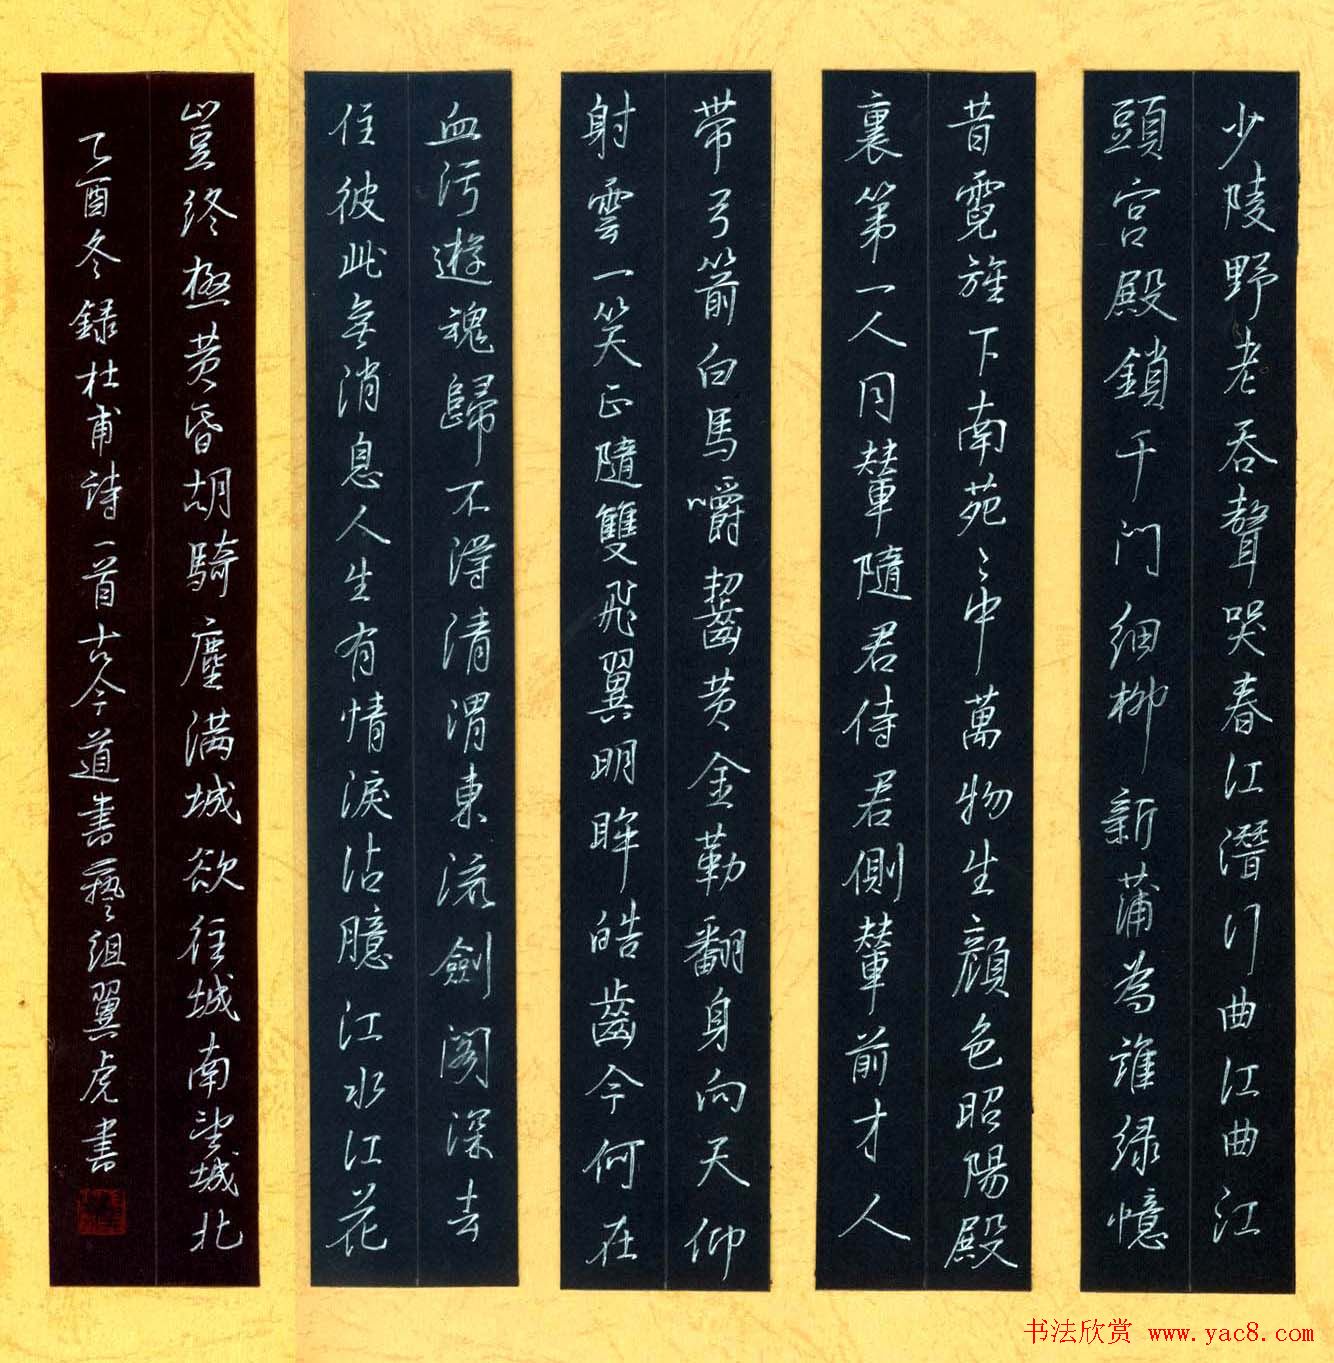 少陵野老吞聲哭春江潛行曲江曲江
頭宮殿鎖千門細柳新蒲為誰緑憶
昔霓旌下南苑〻中萬物生顏色昭陽殿
裏第一人同輦隨君侍君側輦前才人
带弓箭白馬嚼齧黄金勒翻身向天仰
射雲一笑正隨雙飛翼明眸皓齒今何在
血污遊魂歸不得清渭東流劍閣深去
住彼此無消息人生有情淚沾臆江水江花
豈終極黄昏胡騎塵满城欲往城南望城北
乙酉冬録杜甫詩一首古今道書藝組翼虎書
书法欣赏 www.yac8.com